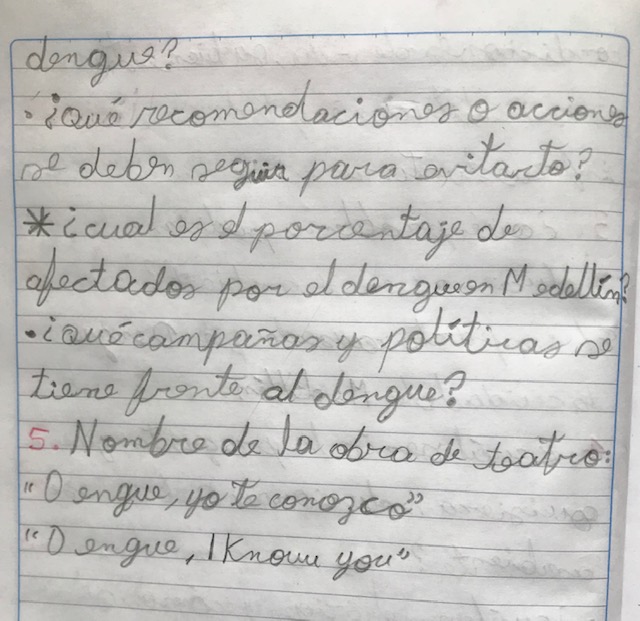 dengue?
• ¿qué recomendaciones o acciones
se deben seguir para evitarlo?
* ¿cual es el porcentaje de
afectados por el dengue en Medellín?
• ¿qué campañas y políticas se
tiene frente al dengue?
5. Nombre de la obra de teatro:
"Dengue, yo te conozco"
"Dengue, I Know you"